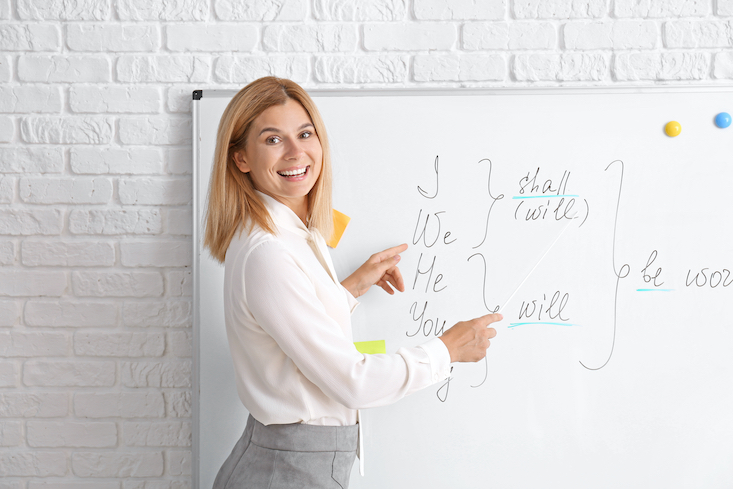 I
We
He
You
y
shall
(will)
will
be wor